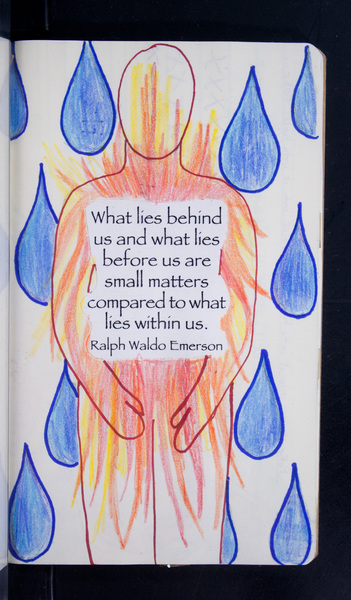 What lies behind
us and what lies
before us are
small matters
compared to what
lies within us.
Ralph Waldo Emerson